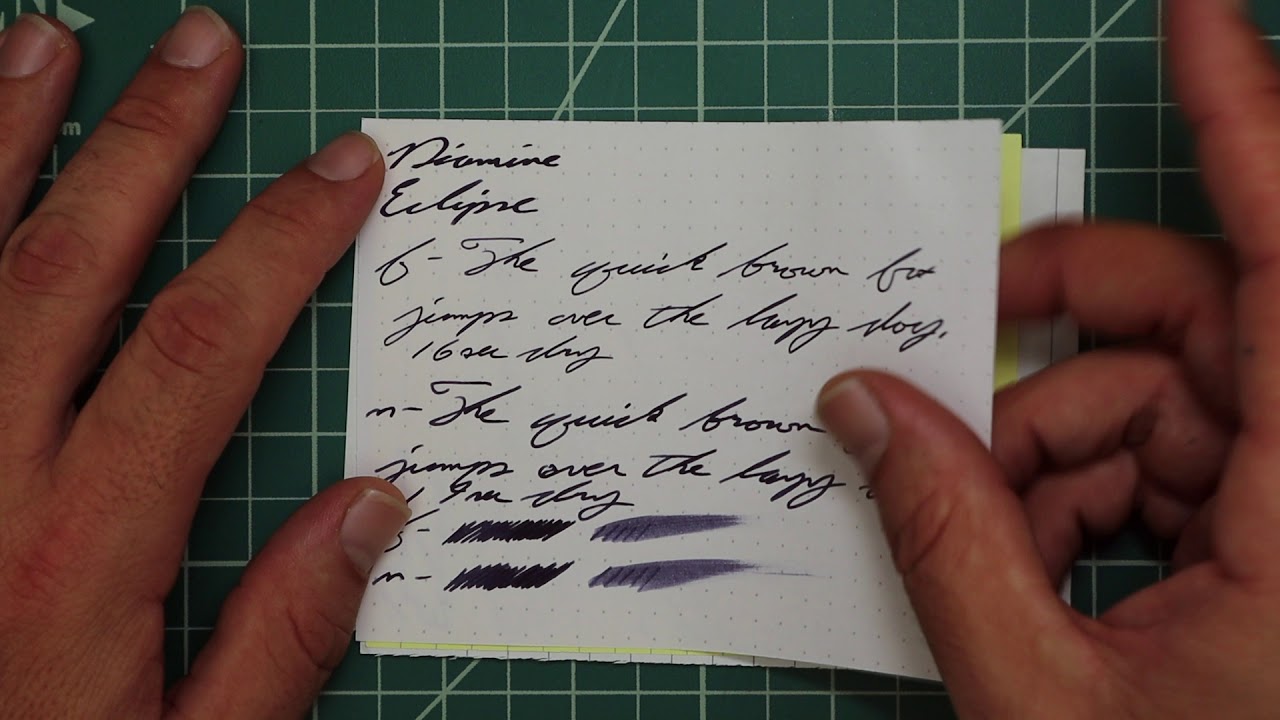 Diamine
Eclipse
f- The quick brown fox
jumps over the lazy dog.
16 sec dry
m- The quick brown
jumps over the lazy
19 sec dry
f-
m-